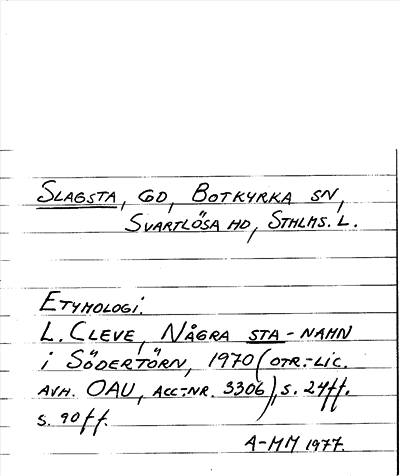 SLAGSTA, GD, BOTKYRKA SN,
SVARTLÖSA HD, STHLMS. L.
ETYMOLOGI.
L. CLEVE, NÅGRA STA-NAMN
i SÖDERTÖRN, 1970 (OTR.-LIC.
AVH. OAU, ACC-NR. 3306), s. 24ff.
s. 90ff.
A-MM 1977.